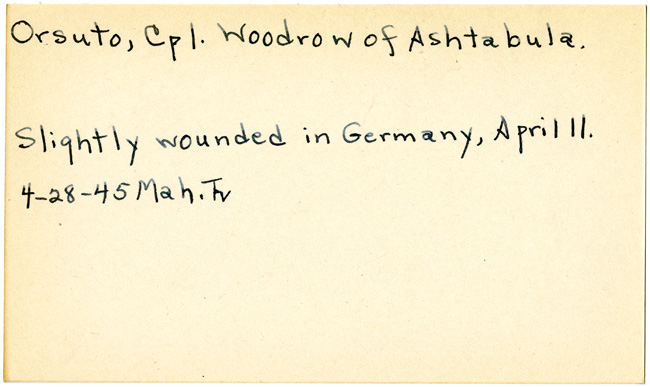 Orsuto, Cpl. Woodrow of Ashtabula.
Slightly wounded in Germany, April 11.
4-28-45 Mah. Tv